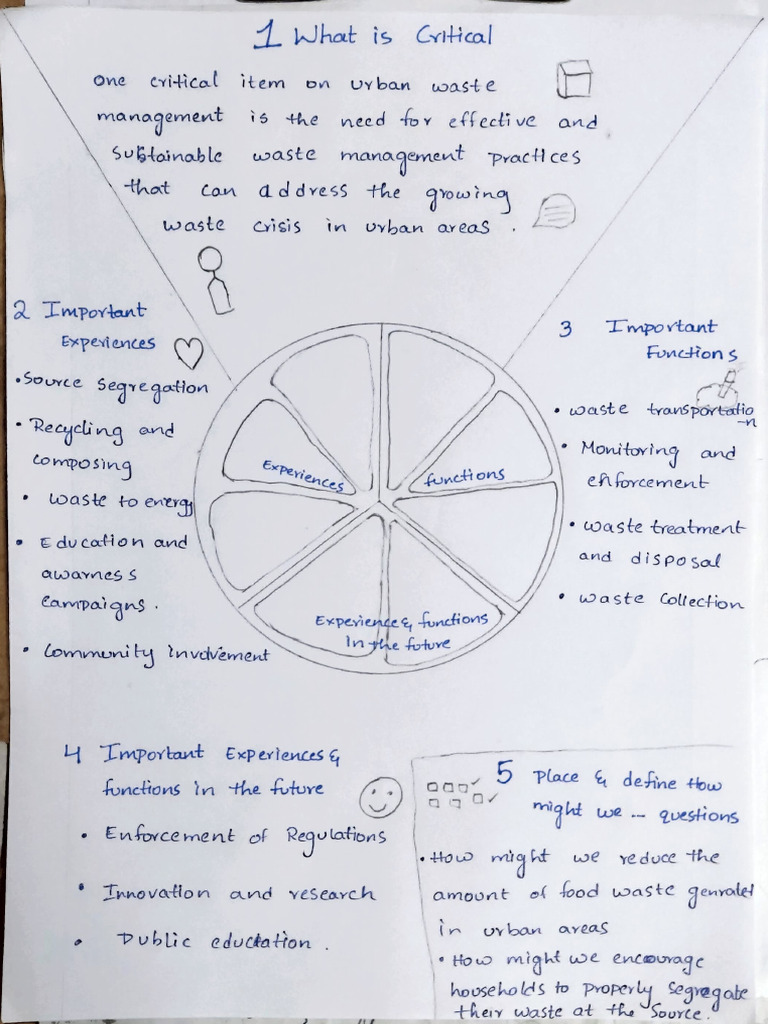 1 What is Critical
one critical item on urban waste
management is the need for effective and
sustainable waste management practices
that can address the growing
waste crisis in urban areas .
2 Important
Experiences
• Source Segregation
• Recycling and
composing
• waste to energy
• Education and
awarness
campaigns .
• Community involvement
3 Important
Functions
• waste transportatio
-n
• Monitoring and
enforcement
• waste treatment
and disposal
• waste collection
Experiences
functions
Experience & functions
In the future
4 Important Experiences &
functions in the future
• Enforcement of Regulations
• Innovation and research
• Public eduction .
5 Place & define How
might we ... questions
• How might we reduce the
amount of food waste genrated
in urban areas
• How might we encourage
households to properly segregate
their waste at the source .